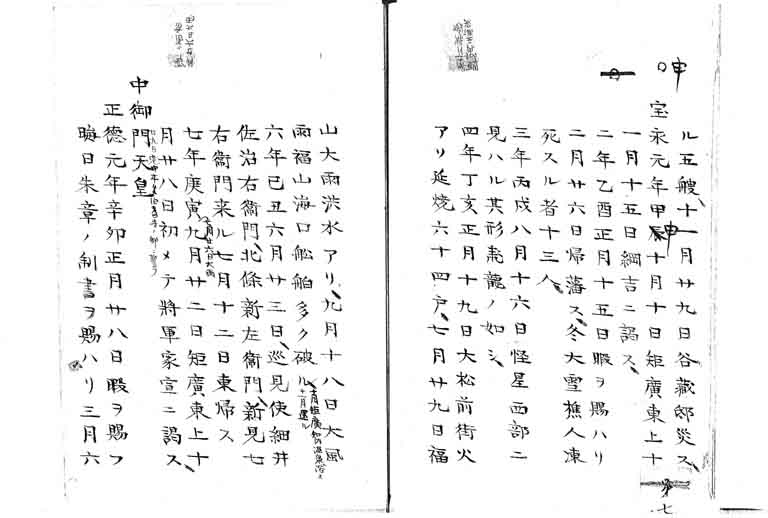 ル五艘、十一月廿九日谷藏邸災ス、
宝永元年甲申十月十日矩廣東上十
一月十五日綱吉ニ謁ス、
二年乙酉正月十五日暇ヲ賜ハリ
二月廿六日帰藩ス、冬大雪樵人凍
死スル者十三人、
三年丙戌八月十六日怪星西部ニ
見ハル其形飛龍ノ如シ、
四年丁亥正月十九日大松前街火
アリ延焼六十四戸、七月廿九日福
山大雨洪水アリ、九月十八日大風
雨福山海口船舶多ク破ル、
六年己丑六月廿三日、巡見使細井
佐治右衞門、北條新左衞門、新見七
右衞門来ル七月十二日東帰ス
七年庚寅九月廿二日矩廣東上十
月廿八日初メテ將軍家宣ニ謁ス、
中御門天皇
正德元年辛卯正月廿八日暇ヲ賜フ
晦日朱章ノ制書ヲ賜ハリ三月六